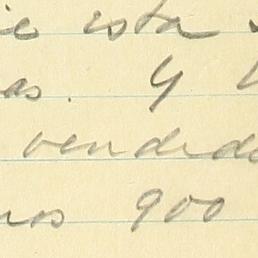 e esta
as. Y
vended
nos 900